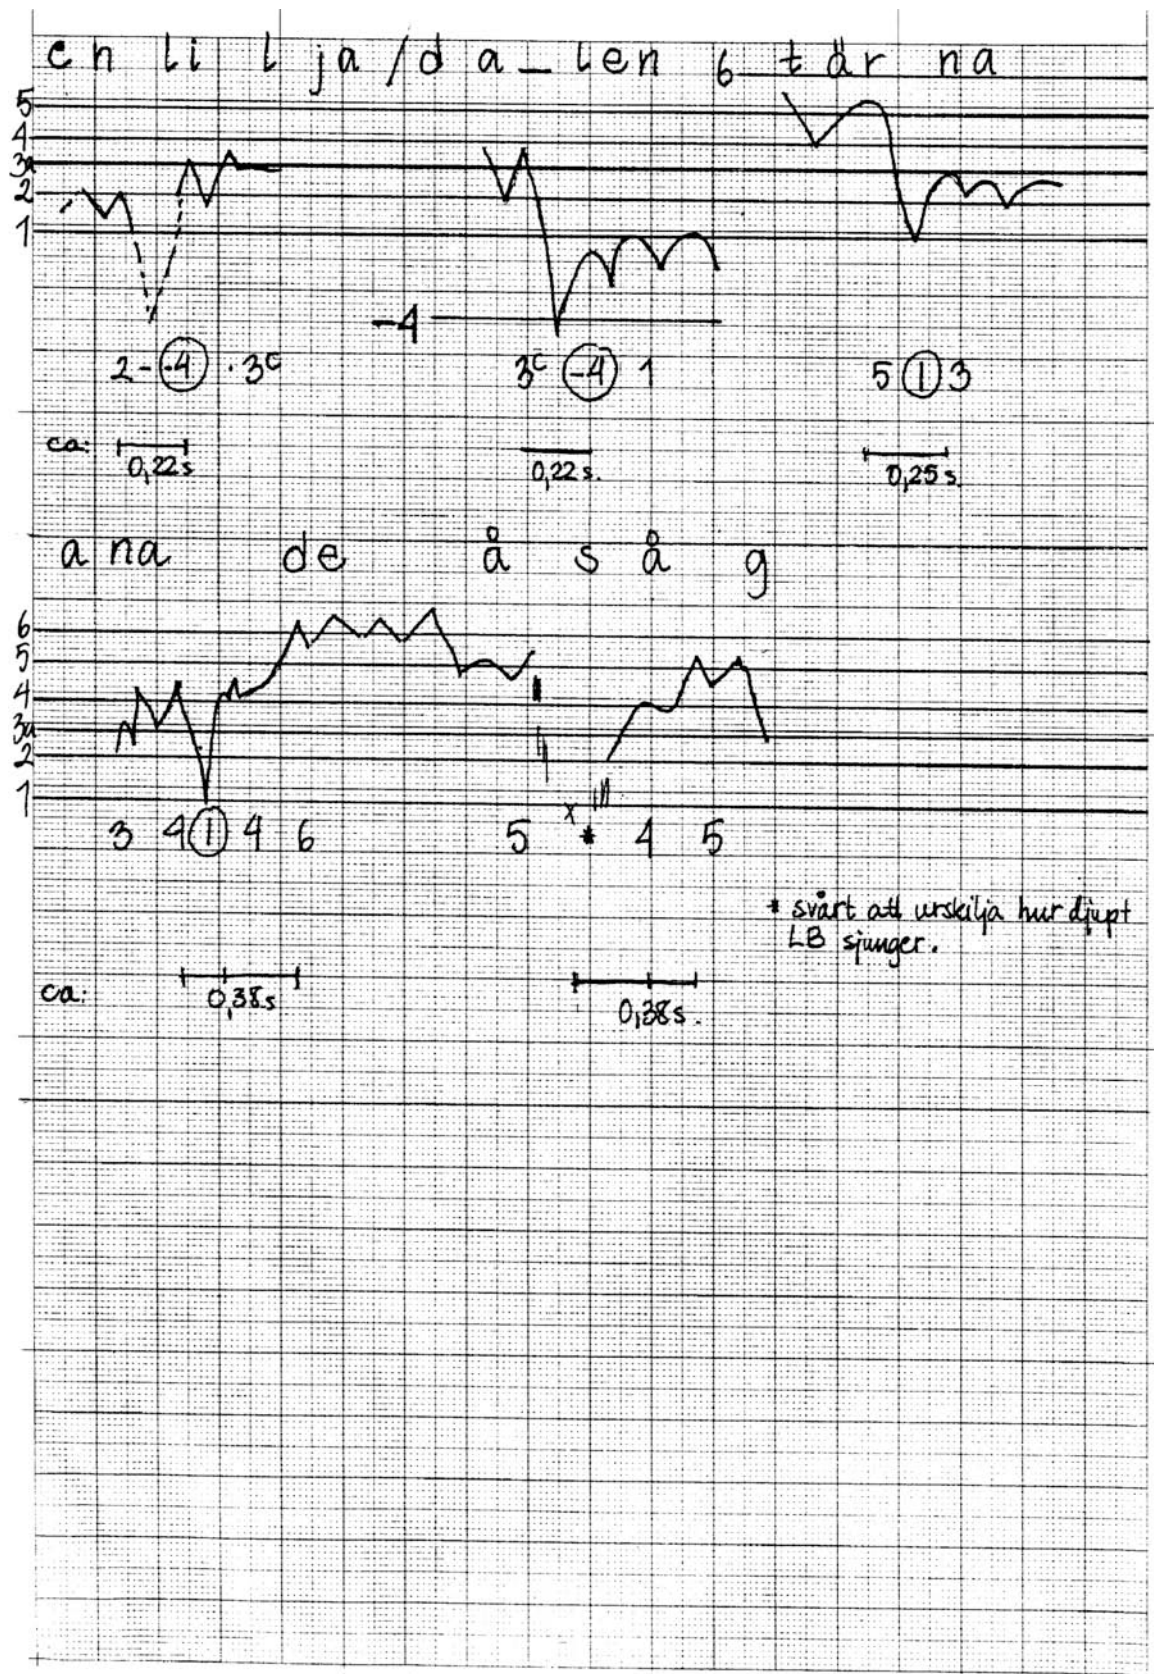 en li l ja / d a _ len 6 tär na
5
4
3a
2
1
-4
2 - (-4) · 3c 3c (-4) 1 5 (1) 3
ca: 0,22 s 0,22 s. 0,25 s.
a na de å s å g
6
5
4
3a
2
1
3 4 (1) 4 6 5 x * 4 5
* svårt att urskilja hur djupt
LB sjunger.
ca: 0,38 s 0,38 s.